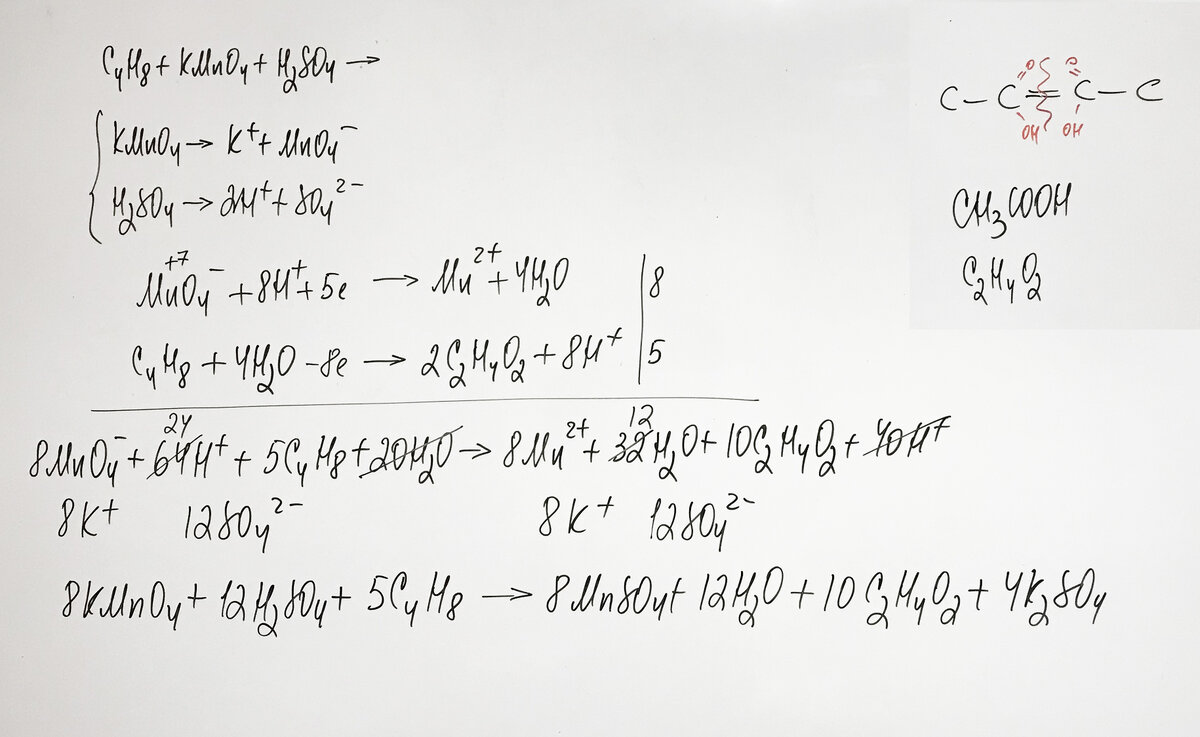 C₄H₈ + KMnO₄ + H₂SO₄ →
KMnO₄ → K⁺ + MnO₄⁻
H₂SO₄ → 2H⁺ + SO₄²⁻
+7
MnO₄⁻ + 8H⁺ + 5e → Mn²⁺ + 4H₂O | 8
C₄H₈ + 4H₂O - 8e → 2C₂H₄O₂ + 8H⁺ | 5
24 12
8MnO₄⁻ + 64H⁺ + 5C₄H₈ + 20H₂O → 8Mn²⁺ + 32H₂O + 10C₂H₄O₂ + 40H⁺
8K⁺ 12SO₄²⁻ 8K⁺ 12SO₄²⁻
8KMnO₄ + 12H₂SO₄ + 5C₄H₈ → 8MnSO₄ + 12H₂O + 10C₂H₄O₂ + 4K₂SO₄
O O
C – C = C – C
OH OH
CH₃COOH
C₂H₄O₂